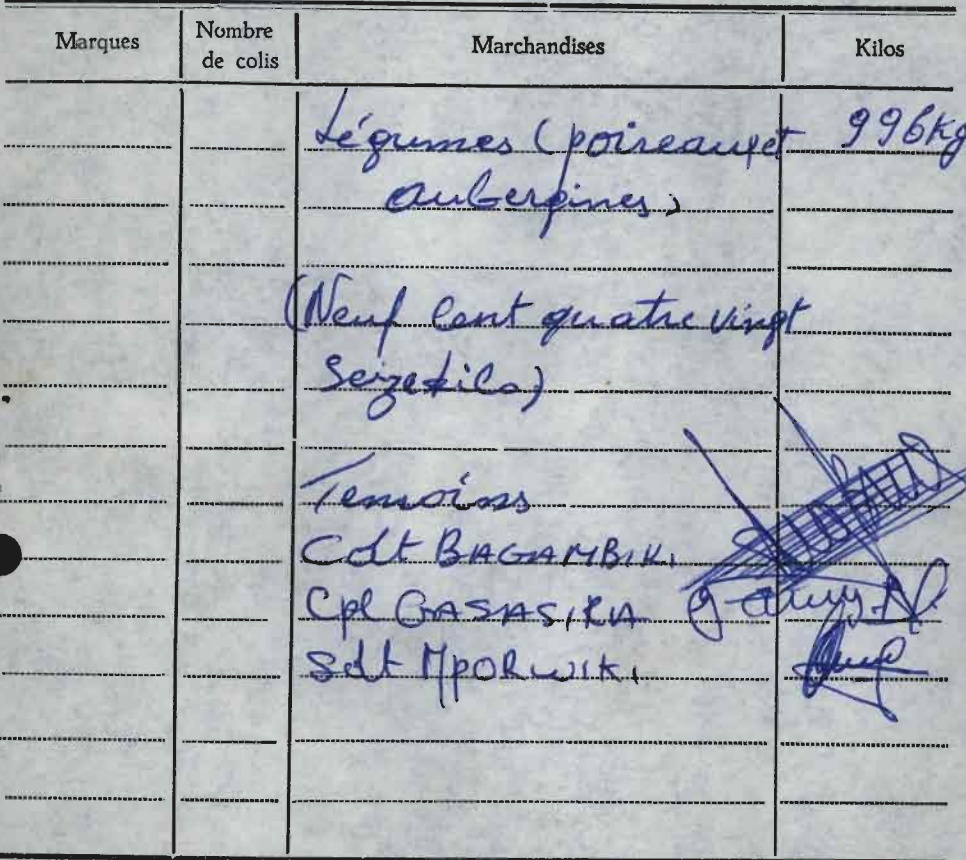 Marques Nombre de colis Marchandises Kilos
Légumes (poireaux et 996Kg
aubergines)
(Neuf cent quatre vingt
Seize kilo)
Temoins
Cdt BAGAMBIKI
Cpl GASASIRA
Sdt MpORWIKI